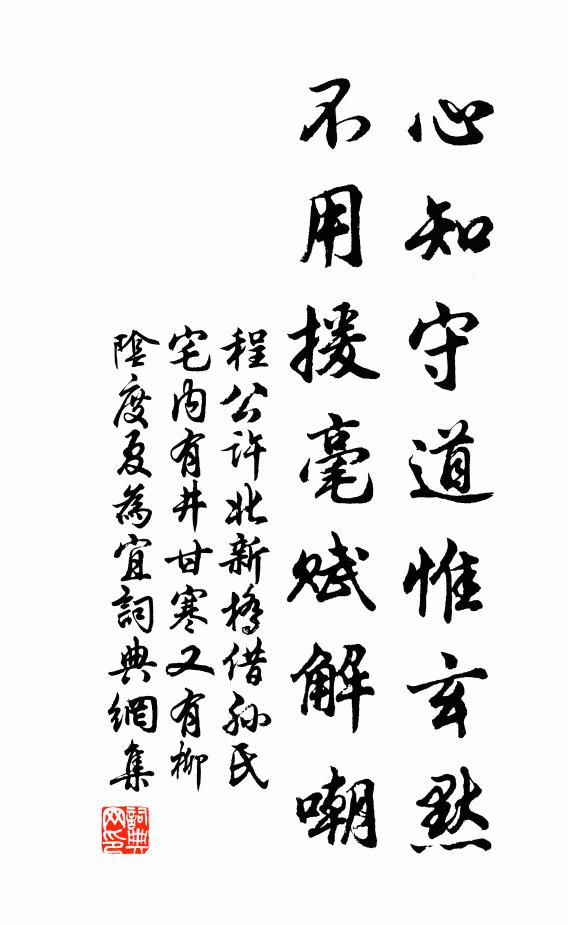 心知守道惟玄默
不用援毫賦解嘲
程公許北新橋借孫氏
宅內有井甘寒又有柳
陰度夏為宜詞典網集
詞典
网印